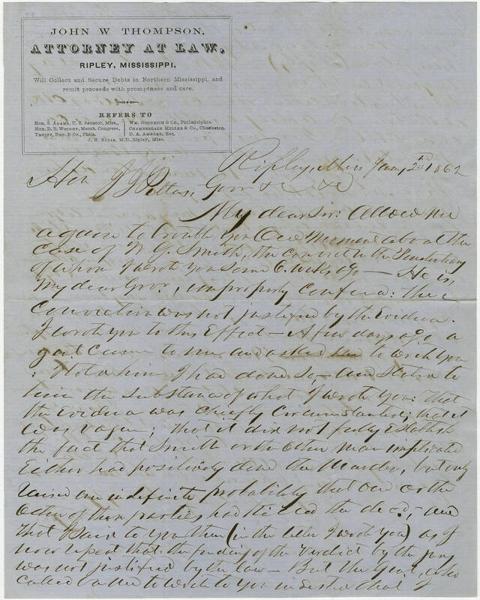 JOHN W THOMPSON,
ATTORNEY AT LAW,
RIPLEY, MISSISSIPPI,
Will Collect and Secure Debts in Northern Mississippi, and
remit proceeds with promptness and care.
REFERS TO
Hon. S. Adams, U. S. Senator, Miss.
Wm. & Co., Philadelphia
Hon. D. B. Wright, Memb. Congress,
& Co., Charleston,
Miss.
M.D. Ripley, Miss.
Ripley, Miss Jany 2d 1862
Hon J J Pettus, Gov &c &c
My dear Sir: Allow me
again to trouble you One moment about the
case of W G. Smith, the convict in the Penitentiary
of whom I wrote you some 6 weeks ago — He is,
my dear Gov., improperly confined: the
conviction was not justified by the evidence.
I wrote you to this Effect — A few days ago a
gent came to me, and asked to write you
I told him I had done so, — and stated to
him the substance of what I wrote you: that
the evidence was chiefly circumstantial; that it
was vague; that it did not fully establish
the fact that Smith or the other man implicated
Either had positively done the Murder, but only
an indefinite probability that one or the
other of these parties had the deed; and
that I say to you then (in the letter I wrote you) as I
now repeat that the finding of the verdict by the jury
was not justified by the law — But the Gent, who
called on me to write to you insisted that I